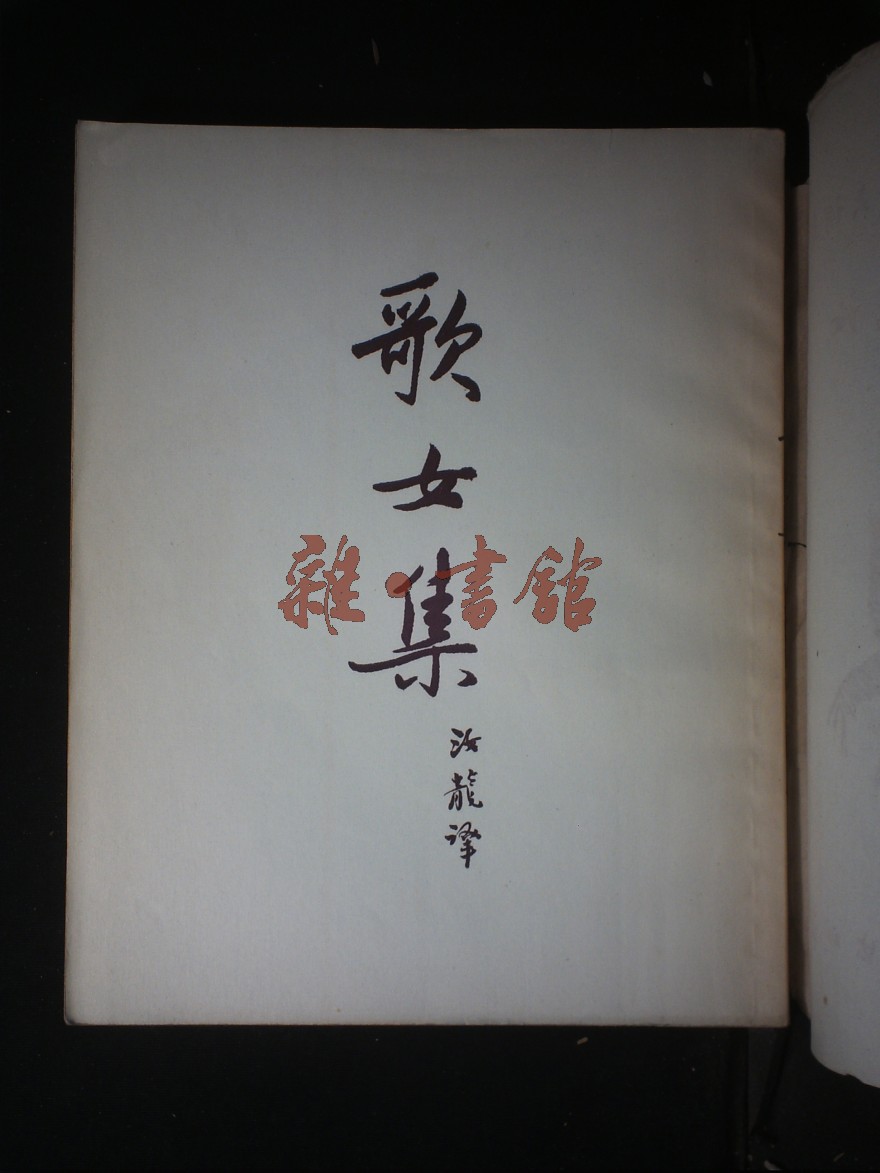 歌女集
汝龍譯
雜·書館